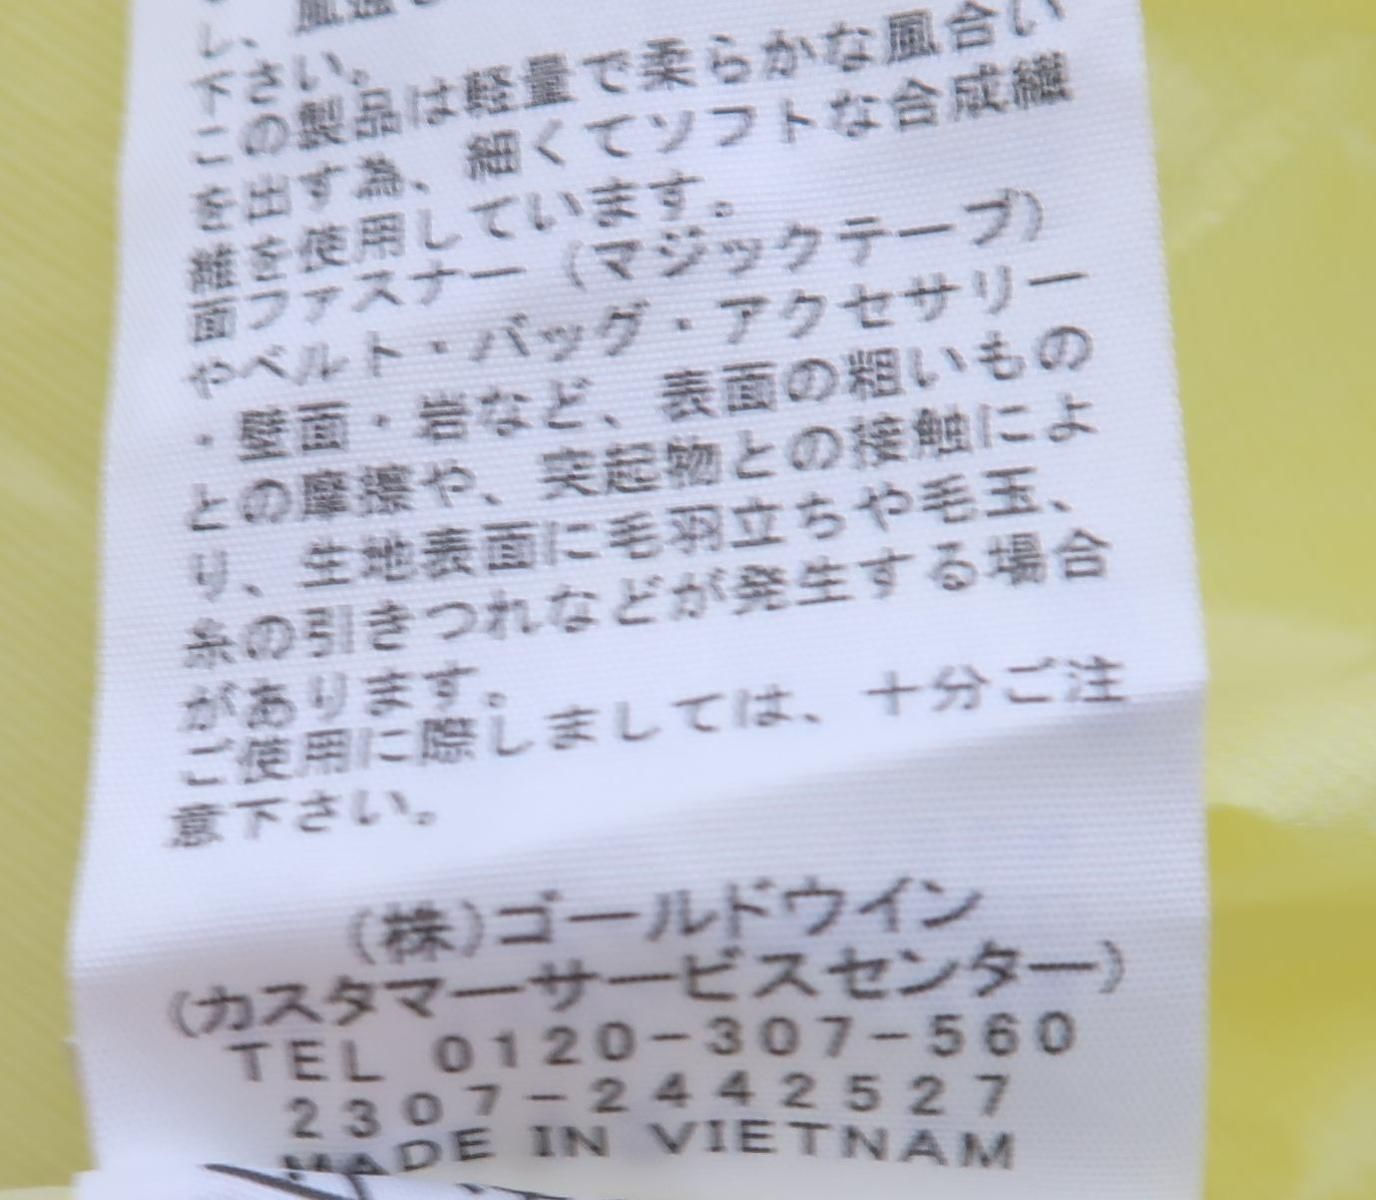 し、風通し
下さい。
この製品は軽量で柔らかな風合い
を出す為、細くてソフトな合成繊
維を使用しています。
面ファスナー（マジックテープ）
やベルト・バッグ・アクセサリー
・壁面・岩など、表面の粗いもの
との摩擦や、突起物との接触によ
り、生地表面に毛羽立ちや毛玉、
糸の引きつれなどが発生する場合
があります。
ご使用に際しましては、十分ご注
意下さい。
（株）ゴールドウイン
（カスタマーサービスセンター）
TEL 0120-307-560
2307-2442527
MADE IN VIETNAM